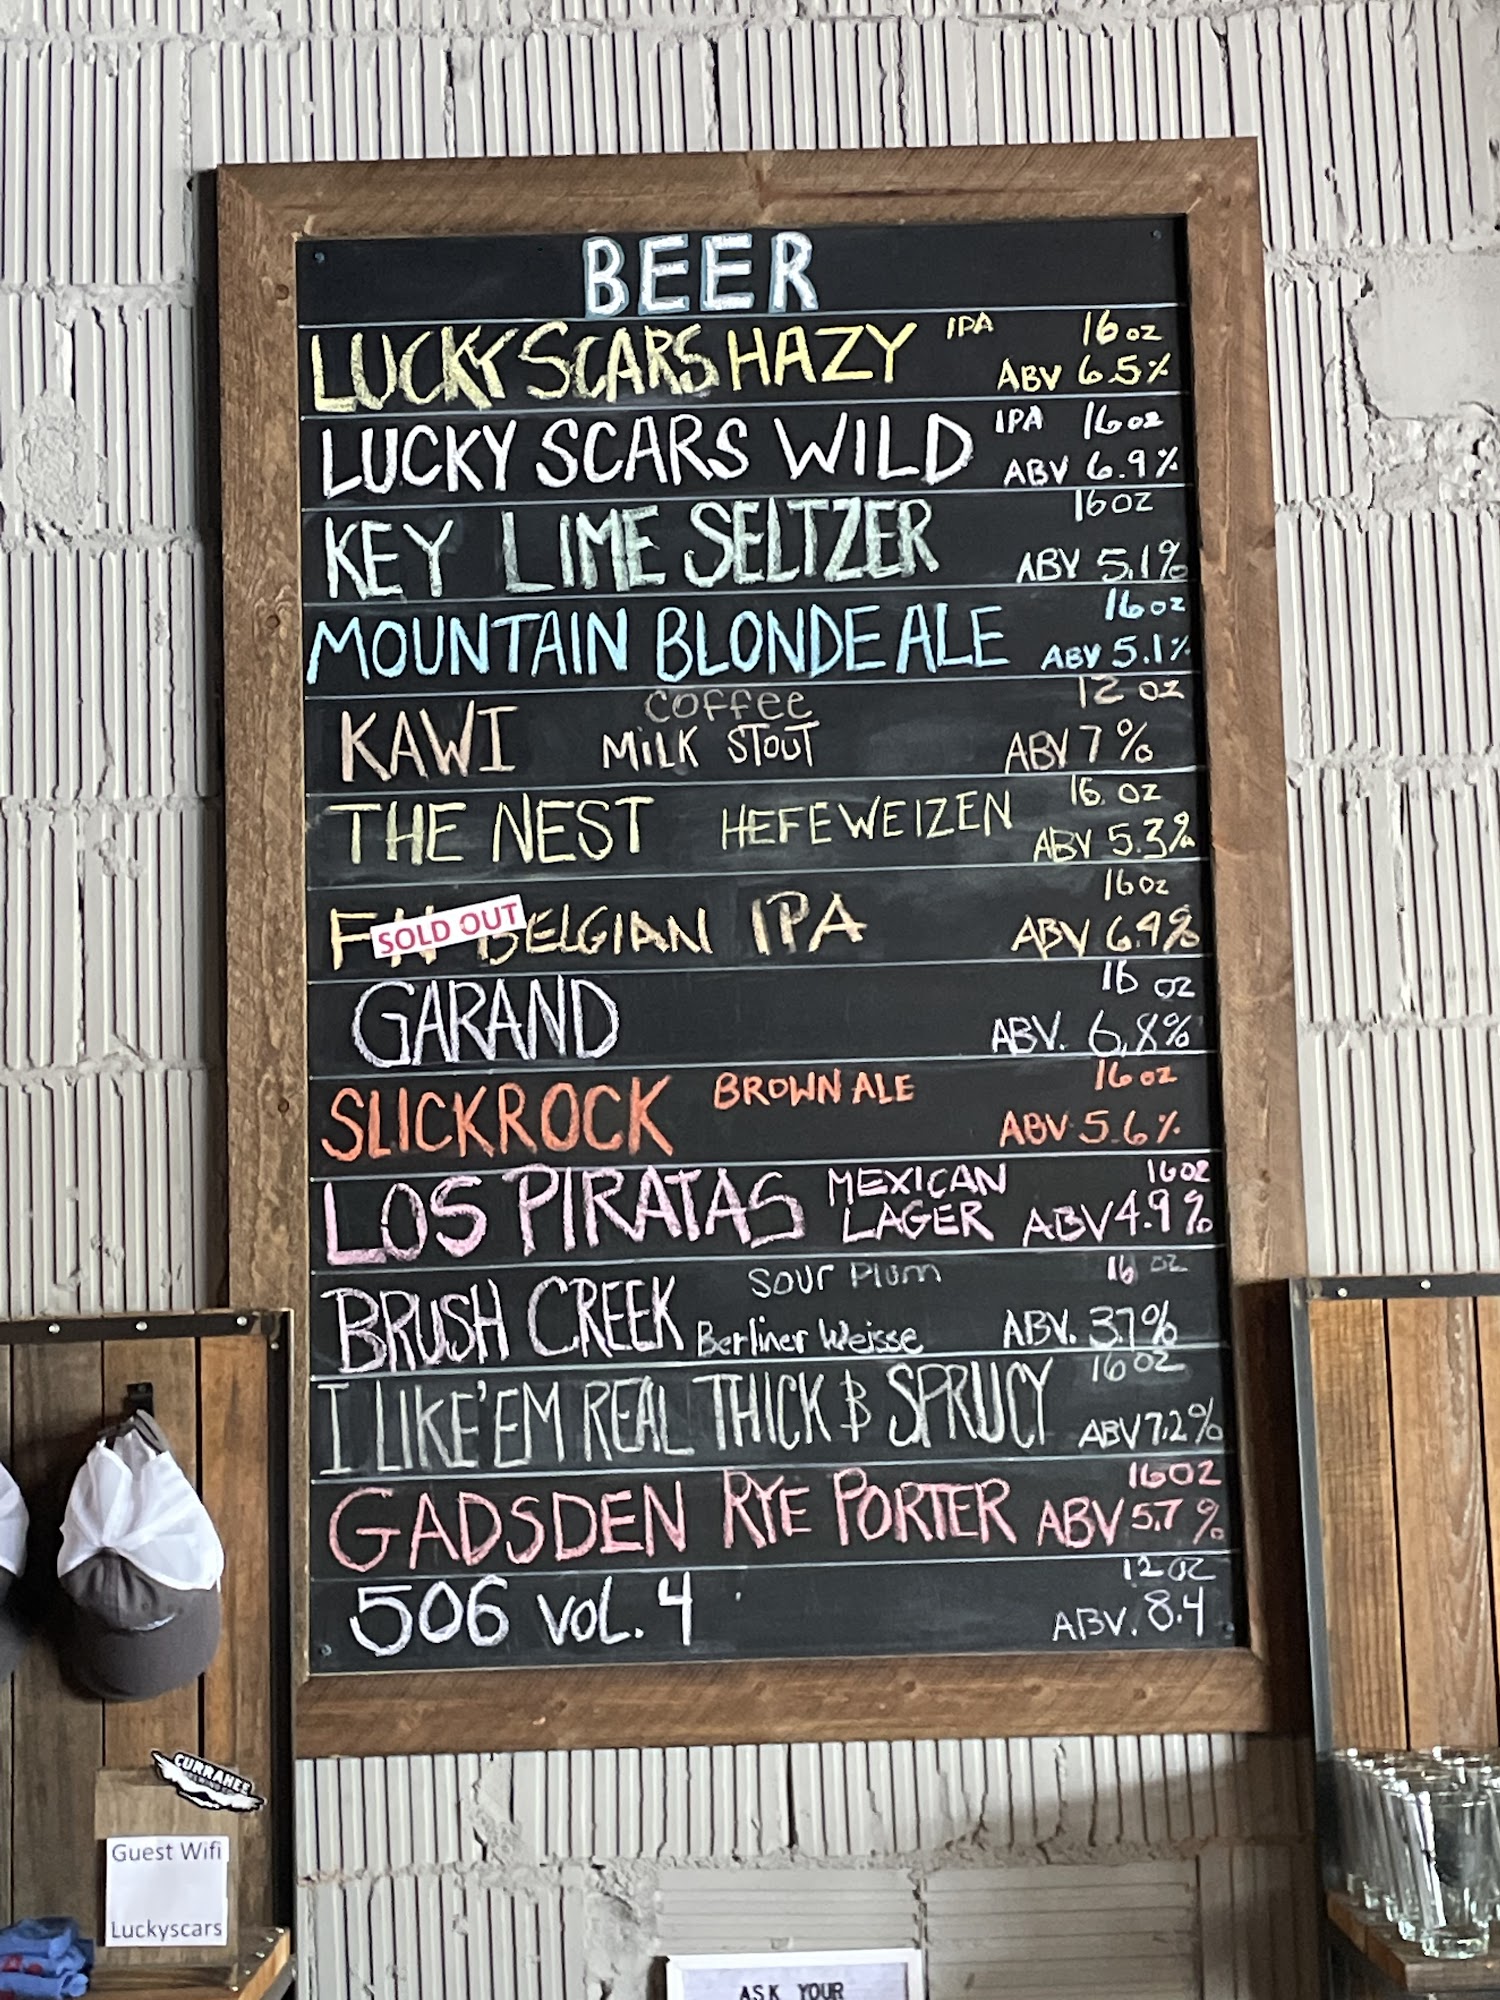 BEER
LUCKY SCARS HAZY IPA 16 oz
ABV 6.5%
LUCKY SCARS WILD IPA 16 oz
ABV 6.9%
KEY LIME SELTZER 16 oz
ABV 5.1%
MOUNTAIN BLONDE ALE 16 oz
ABV 5.1%
KAWI COFFEE 12 oz
MILK STOUT ABV 7%
THE NEST HEFEWEIZEN 16. OZ
ABV 5.3%
16oz
FN BELGIAN IPA ABV 6.9%
SOLD OUT
GARAND 16 oz
ABV. 6.8%
SLICKROCK BROWN ALE 16 oz
ABV 5.6%
LOS PIRATAS MEXICAN 16oz
LAGER ABV 4.9%
BRUSH CREEK Sour Plum 16 oz
Berliner Weisse ABV. 3.7%
I LIKE 'EM REAL THICK & SPRUCY 16oz
ABV 7.2%
GADSDEN RYE PORTER 16OZ
ABV 5.7%
506 VOL. 4 12oz
ABV. 8.4
CURRAHEE
Guest Wifi
Luckyscars
ASK YOUR